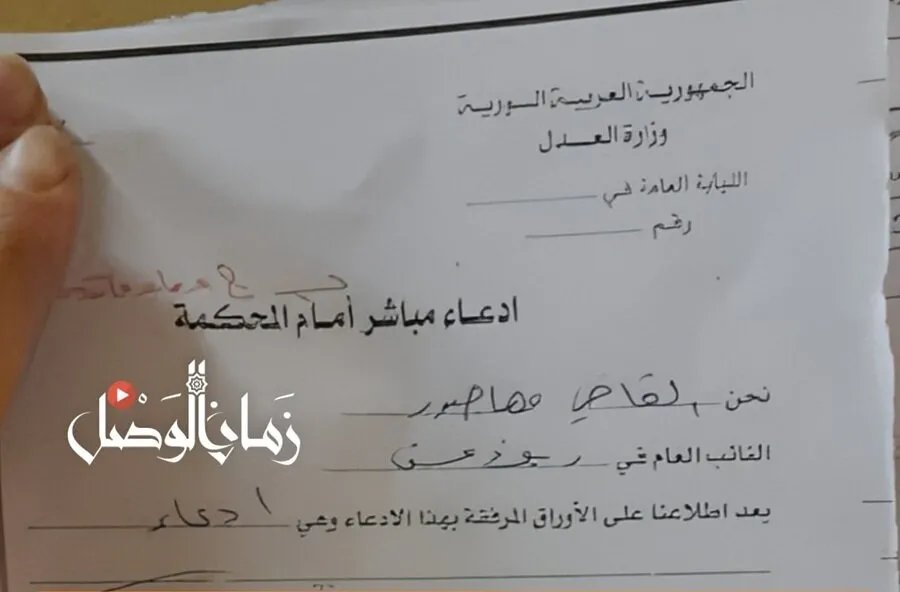 الجمهورية العربية السورية
وزارة العدل
النيابة العامة في
رقم
ادعاء مباشر أمام المحكمة
زمان الوصل
نحن القاضي
النائب العام في
بعد اطلاعنا على الأوراق المرفقة بهذا الادعاء وهي ادعاء